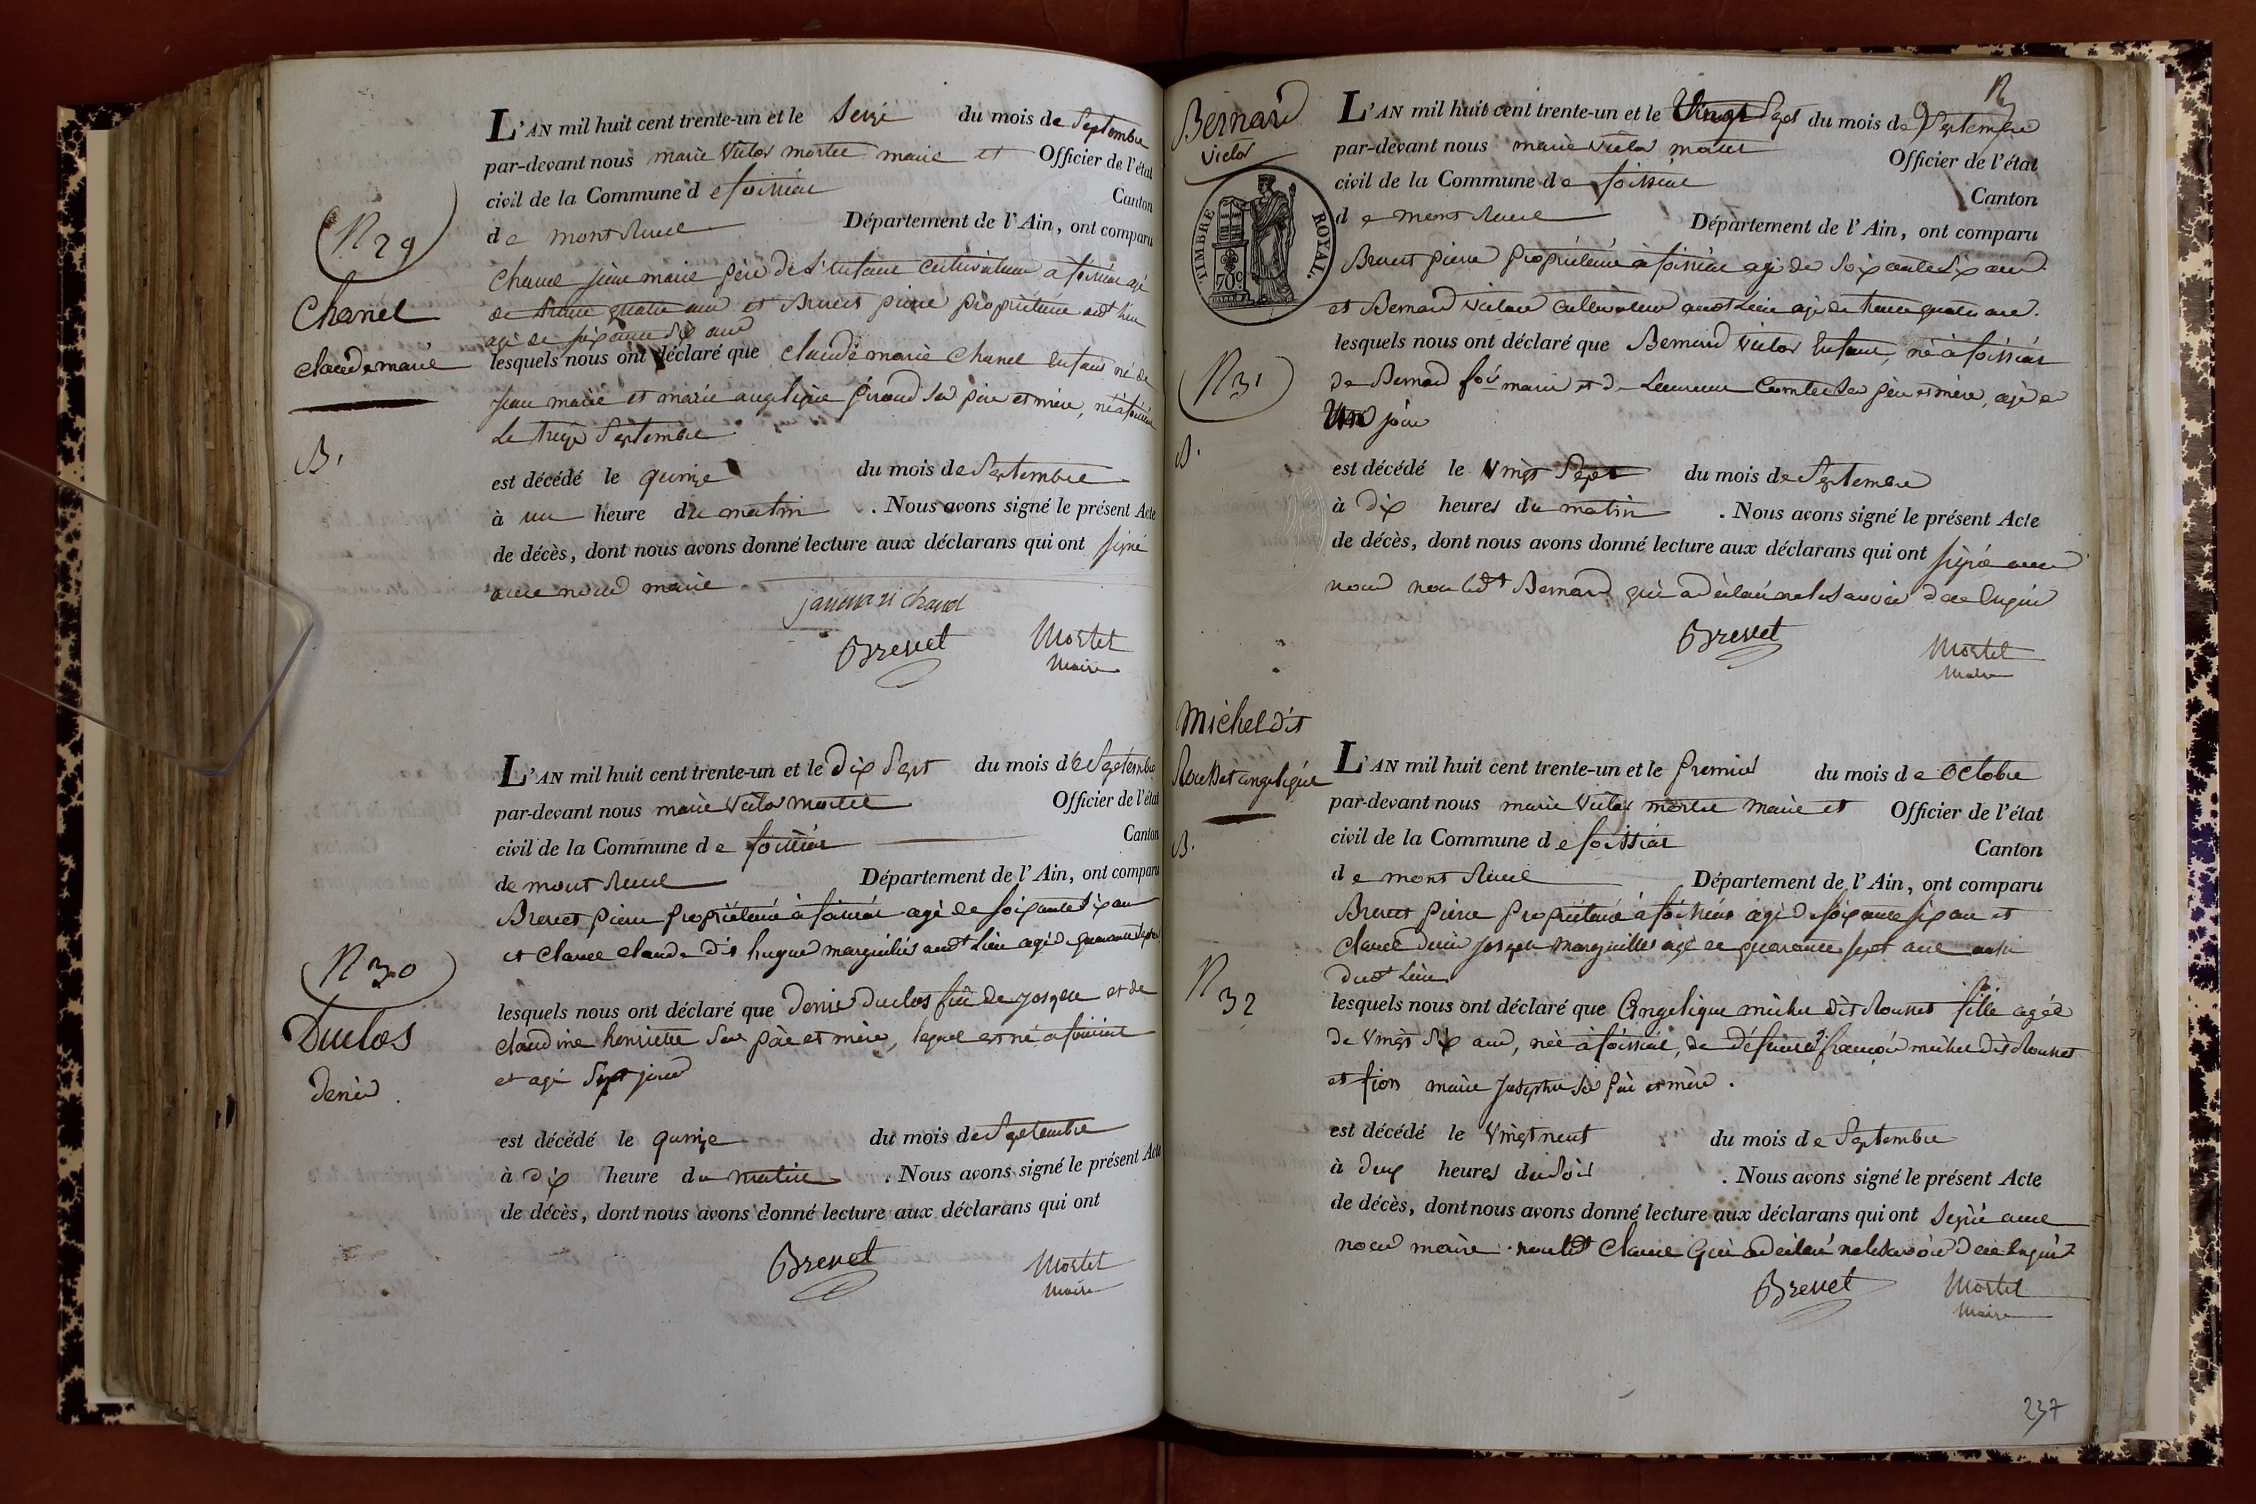 N 29
Chanel
claude marie
B.
L'AN mil huit cent trente-un et le Seize du mois de Septembre
par-devant nous marie Victor mortel maire et Officier de l'état
civil de la Commune de foissiat Canton
de montrevel Département de l'Ain, ont comparu
Chanel jean marie père de l'enfant cultivateur a foissiat agé
de trente quatre ans et Brevet pierre propriétaire audt lieu
agé de soixante six ans
lesquels nous ont déclaré que claude marie Chanel enfant né de
jean marie et marie angelique giraud ses père et mère, né a foissiat
Le treize Septembre
est décédé le quinze du mois de Septembre
à un heure du matin . Nous avons signé le présent Acte
de décès, dont nous avons donné lecture aux déclarans qui ont signé
avec nous maire
Brevet Mortel
Maire
N 30
Duclos
denis
L'AN mil huit cent trente-un et le dix Sept du mois de Septembre
par-devant nous marie Victor mortel Officier de l'état
civil de la Commune de foissiat Canton
de montrevel Département de l'Ain, ont comparu
Brevet pierre propriétaire à foissiat agé de soixante six ans
et Claude dit hugue marguillier audt Lieu agé de quarante sept ans
lesquels nous ont déclaré que denis duclos fils de joseph et de
claudine henriette ses père et mère, lequel est né a foissiat
et agé Sept jours
est décédé le quinze du mois de Septembre
à dix heure du matin . Nous avons signé le présent Acte
de décès, dont nous avons donné lecture aux déclarans qui ont
Brevet Mortel
Maire
Bernard
Victor
TIMBRE ROYAL
70c
N 31
B.
L'AN mil huit cent trente-un et le Vingt Sept du mois de Septembre
par-devant nous marie Victor mortel Officier de l'état
civil de la Commune de foissiat Canton
de montrevel Département de l'Ain, ont comparu
Brevet pierre propriétaire à foissiat agé de Soixante Six ans
et Bernard cultivateur audt Lieu agé de trente quatre ans.
lesquels nous ont déclaré que Bernard Victor Enfant, né à foissiat
de Bernard marie et de ses père et mère, agé de
Un jour
est décédé le Vingt Sept du mois de Septembre
à dix heures du matin . Nous avons signé le présent Acte
de décès, dont nous avons donné lecture aux déclarans qui ont signé avec
nous non ledt Bernard qui a déclaré ne le savoir de ce requis
Brevet Mortel
Maire
Michel dit
Rousset angelique
B.
N 32
L'AN mil huit cent trente-un et le premier du mois de Octobre
par-devant nous marie Victor mortel maire et Officier de l'état
civil de la Commune de foissiat Canton
de montrevel Département de l'Ain, ont comparu
Brevet pierre propriétaire à foissiat agé de soixante six ans et
joseph marguillier agé de quarante sept ans
dudt Lieu
lesquels nous ont déclaré que Angelique michel dit Rousset fille agée
de Vingt Six ans, née à foissiat, de défunts françois michel dit Rousset
et marie Josephte ses père et mère.
est décédé le Vingt neuf du mois de Septembre
à deux heures du Soir . Nous avons signé le présent Acte
de décès, dont nous avons donné lecture aux déclarans qui ont Signé avec
nous maire. non ledt qui a déclaré ne le savoir de ce requis
Brevet Mortel
Maire
237